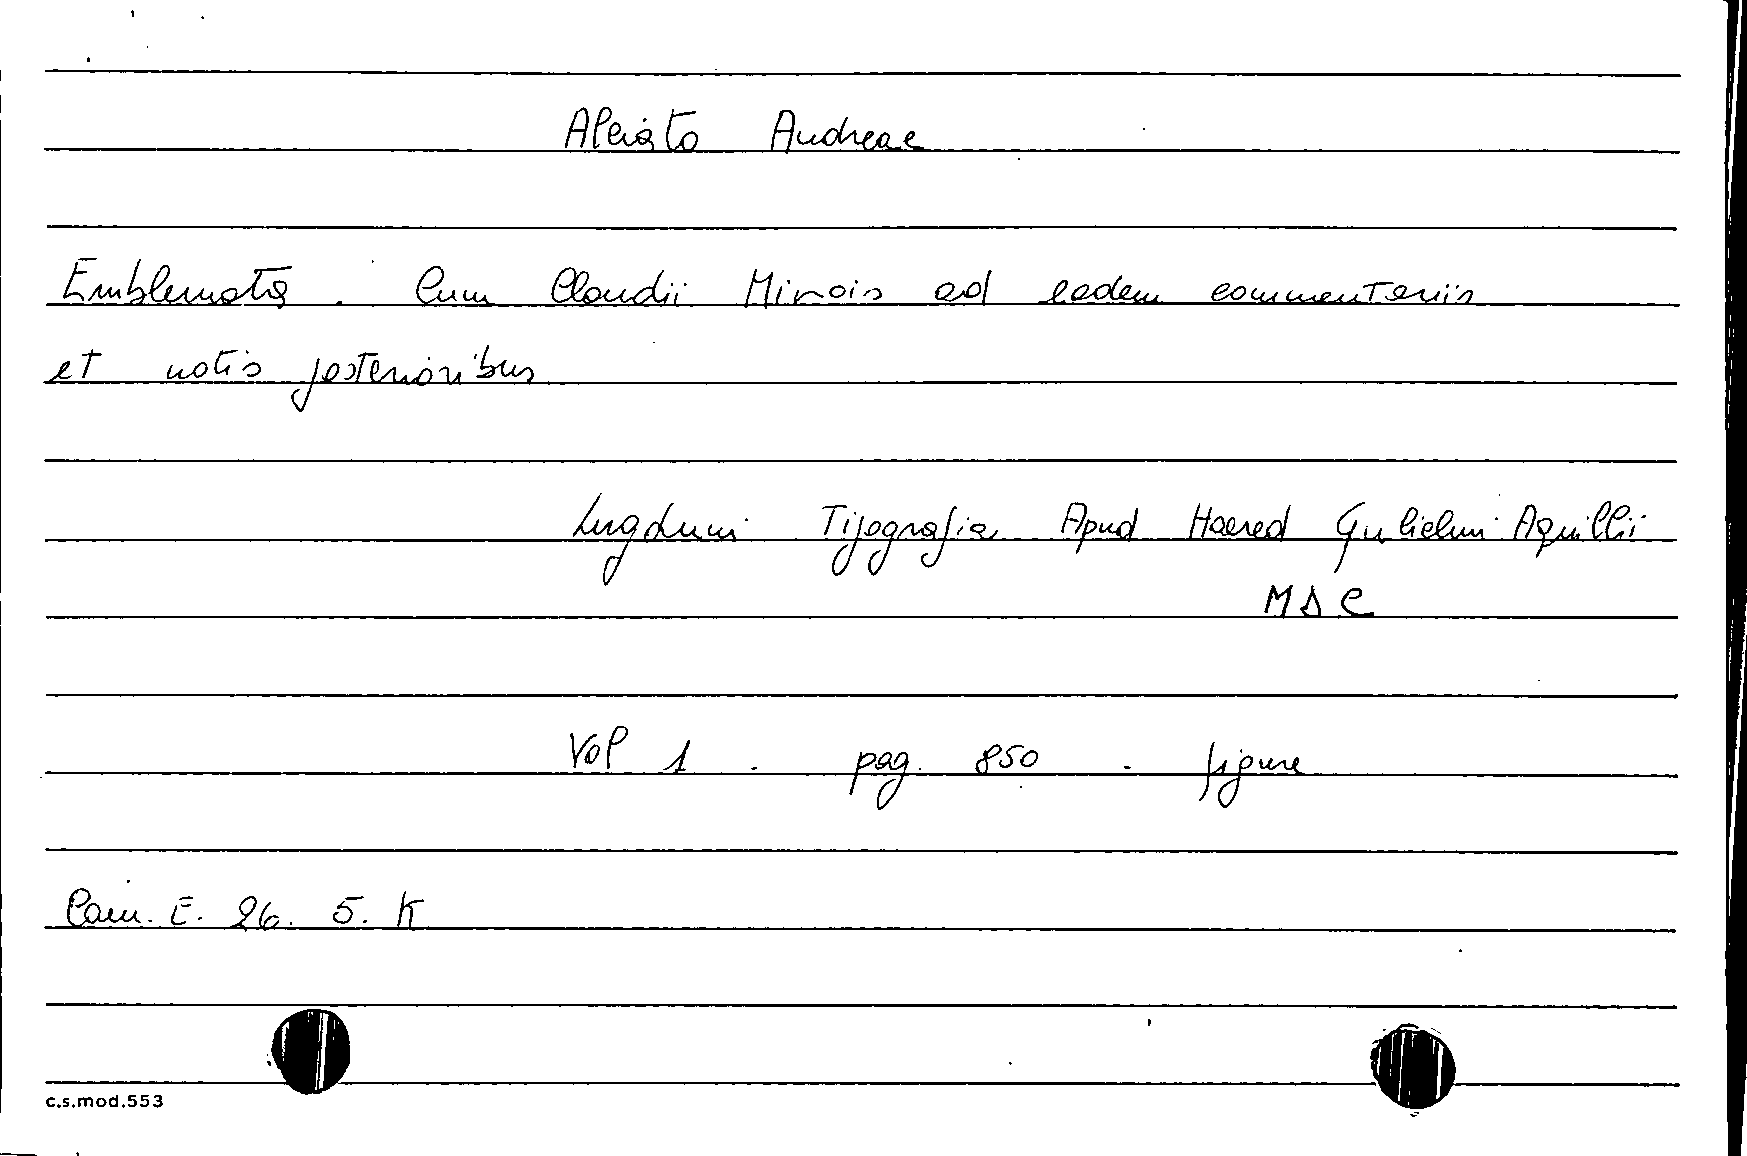 Alciato Andreae
Emblemata. Cum Claudii Minois ad eadem commentariis
et notis posterioribus
Lugduni Tipografia Apud Haered Gulielmi Aquillii
MDC
Vol 1. pag. 850. figure
Cam. E. 26. 5. K
c.s.mod.553